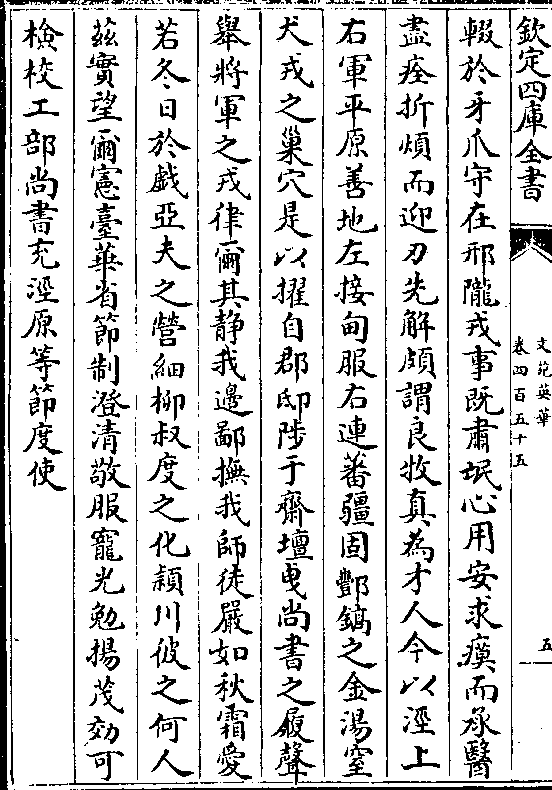 欽定四庫全書
文苑英華
卷四百五十五
五
輟於牙爪守在邢隴戎事既肅氓心用安求瘼而承醫
盡痊折煩而迎刃先解頗謂良牧真為才人今以涇上
右軍平原善地左接甸服右連蕃疆固酆鎬之金湯窒
犬戎之巢穴是以擢自郡邸陟于齋壇曵尚書之履聲
舉將軍之戎律爾其静我邊鄙撫我師徒嚴如秋霜愛
若冬日於戲亞夫之營細柳叔度之化潁川彼之何人
兹實望爾憲臺華省節制澄清敬服寵光勉揚茂効可
檢校工部尚書充涇原等節度使